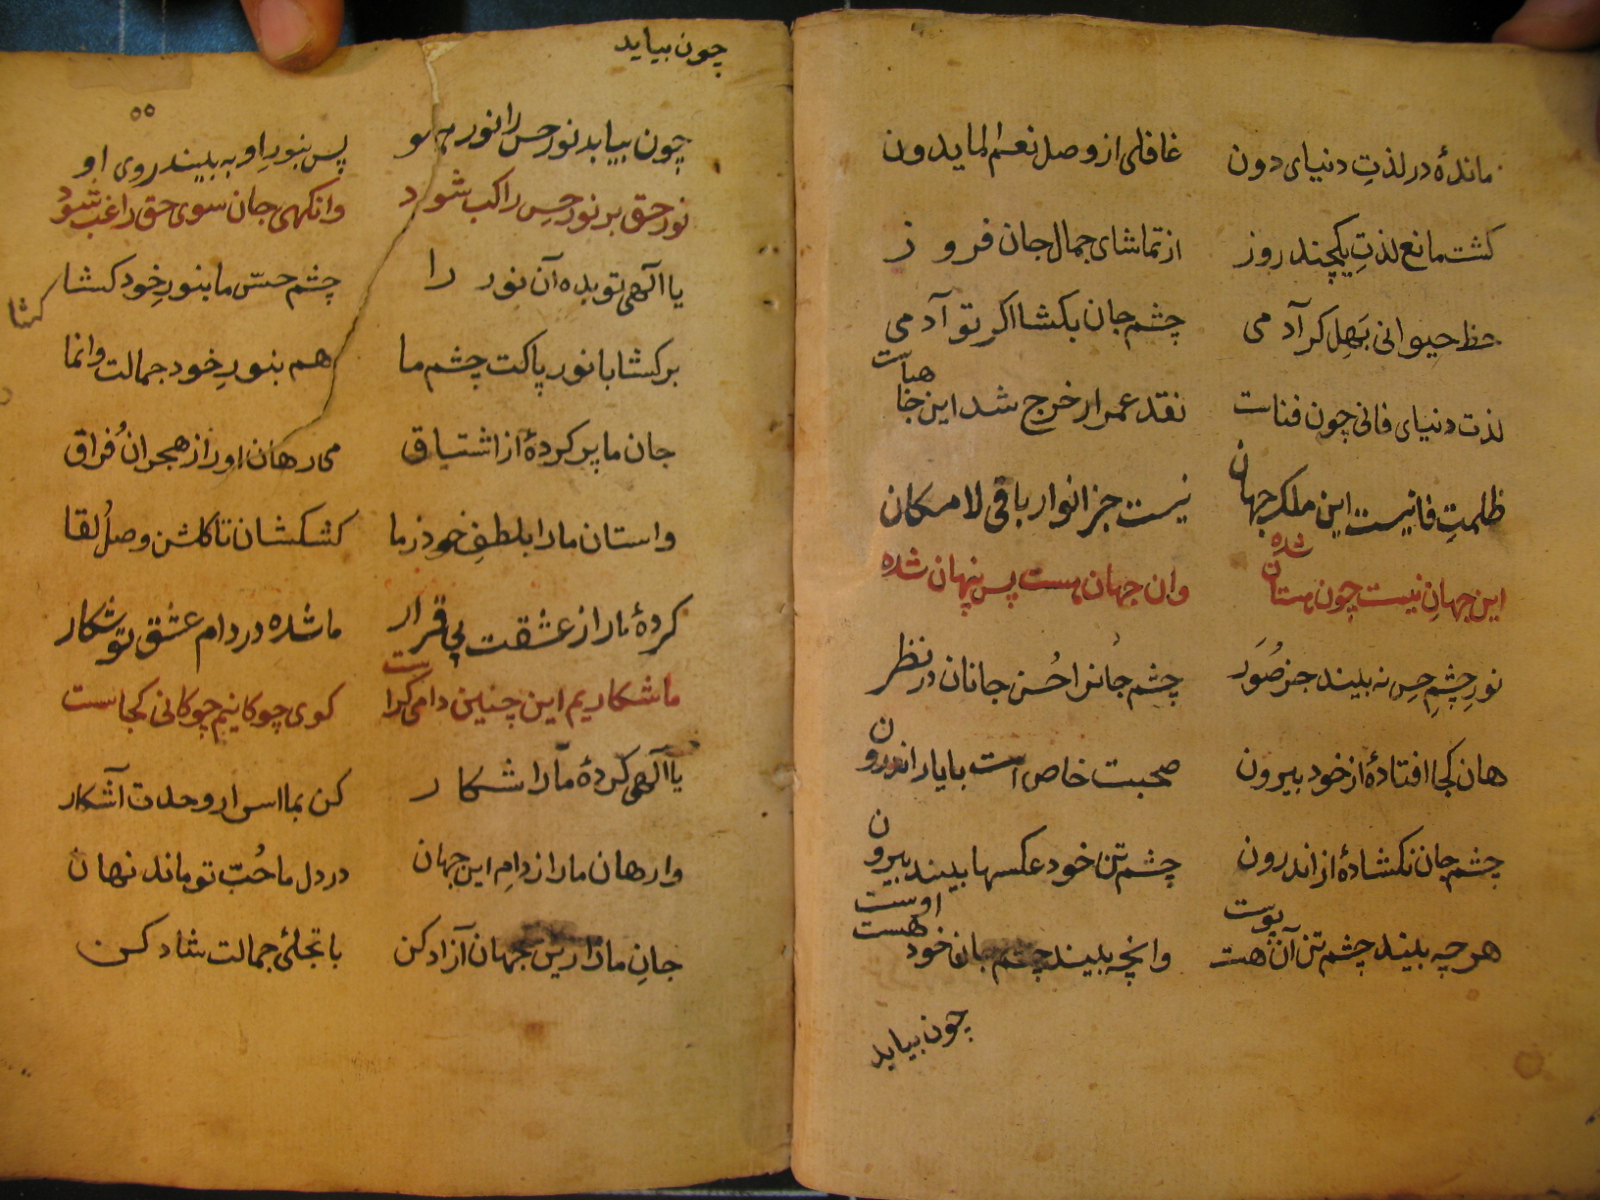 ماندهٔ در لذتِ دنیای دون غافلی از وصل نعم الماهدون
کشت مانع لذتِ یکچند روز از تماشای جمال جان فروز
حظ حیوانی بهِل کر آدمی چشم جان بکشا اکر تو آدمی
لذت دنیای فانی چون فناست نقد عمر ار خرج شد اینجا هباست
ظلمتِ فانیست این ملک جهان نیست جز انوار باقی لامکان
این جهانِ نیست چون هستان شده وان جهان هست پس پنهان شده
نورِ چشمِ حِس نه بیند جز صُوَر چشم جانرا حُسن جانان در نظر
هان کجا افتادهٔ از خود بیرون صحبت خاص است با یار اندرون
چشم جان نکشادهٔ از اندرون چشم تن خود عکسها بیند بیرون
هر چه بیند چشم تن آن هست پوست وانچه بیند چشم جان خود هست اوست
چون بیابد
چون بیابد
٥٥
چون بیابد نور حس را نور پس بنورِ او به بیند روی او
نور حق بر نور حِس راکب شود وانکهی جان سوی حق راغب شود
یا آلهی تو بده آن نور را چشم حسّ ما بنورِ خود کشا
کشا
برکشا با نور پاکت چشم ما هم بنورِ خود جمالت وانما
جان ما پر کردهٔ از اشتیاق می رهان او را از هجران فراق
واستان ما را بلطفِ خود ز ما کشکشان تا کلشن وصل لقا
کردهٔ ما را از عشقت بی قرار ما شده در دام عشق تو شکار
ما شکاریم این چنین دامی کراست کوی چوکانیم چوکانی کجاست
یا آلهی کردهٔ ما را شکار کن بما اسرار وحدت آشکار
وارهان ما را از دامِ این جهان در دل ما حُبّ تو ماند نهان
جانِ ما را زین جهان آزاد کن با تجلئ جمالت شاد کن